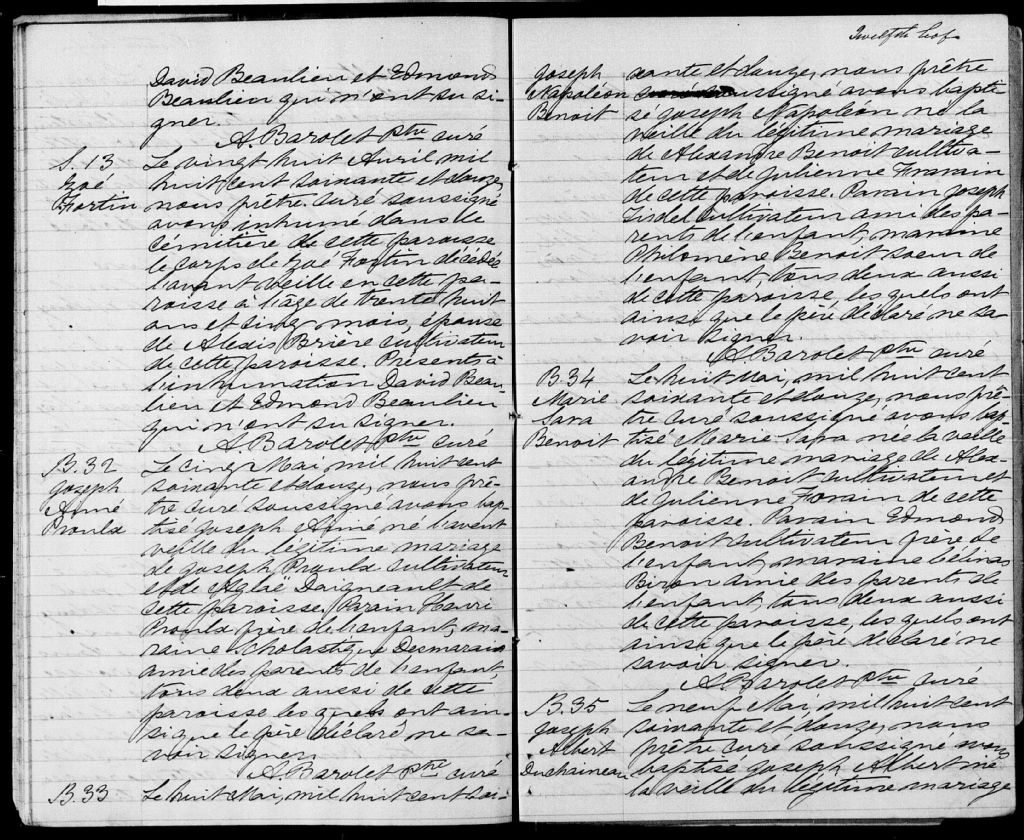 David Beaulieu et Edmond
Beaulieu qui n'ont su si-
gner.
A. Barolet ptre curé
S. 13
Zoé
Fortin
Le vingt huit Avril mil
huit cent soixante et douze,
nous prêtre curé soussigné
avons inhumé dans le
cémitière de cette paroisse
le corps de Zoé Fortin décédée
l'avant veille en cette pa-
roisse à l'âge de trente huit
ans et cinq mois, épouse
de Alexis Brière cultivateur
de cette paroisse. Présents à
l'inhumation David Beau-
lieu et Edmond Beaulieu
qui n'ont su signer.
A. Barolet ptre curé
B. 32
Joseph
Aimé
Proulx
Le cinq Mai, mil huit cent
soixante et douze, nous prê-
tre curé soussigné avons bap-
tisé Joseph Aimé né l'avant
veille du légitime mariage
de Joseph Proulx cultivateur
et de Aglaë Daigneault de
cette paroisse. Parain Henri
Proulx frère de l'enfant, ma-
raine Scholastique Desmarais
amie des parents de l'enfant,
tous deux aussi de cette
paroisse les quels ont ain-
si que le père déclaré ne sa-
voir signer.
A. Barolet ptre curé
B. 33
Le huit Mai, mil huit cent soi-
Twelfth leaf
Joseph
Napoléon
Benoit
xante et douze, nous prêtre
soussigné avons bapti-
sé Joseph Napoléon né la
veille du légitime mariage
de Alexandre Benoit cultiva-
teur et de Julienne Forain
de cette paroisse. Parain Joseph
cultivateur ami des pa-
rents de l'enfant, maraine
Philomène Benoit soeur de
l'enfant, tous deux aussi
de cette paroisse, les quels ont
ainsi que le père déclaré ne sa-
voir signer.
A. Barolet ptre curé
B. 34
Marie
Sara
Benoit
Le huit Mai, mil huit cent
soixante et douze, nous prê-
tre curé soussigné avons bap-
tisé Marie Sara née la veille
du légitime mariage de Alex-
andre Benoit cultivateur et
de Julienne Forain de cette
paroisse. Parain Edmond
Benoit cultivateur frère de
l'enfant, maraine Célinas
Biron amie des parents de
l'enfant, tous deux aussi
de cette paroisse, les quels ont
ainsi que le père déclaré ne
savoir signer.
A. Barolet ptre curé
B. 35
Joseph
Albert
Duchaineau
Le neuf Mai, mil huit cent
soixante et douze, nous
prêtre curé soussigné avons
baptisé Joseph Albert né
la veille du légitime mariage